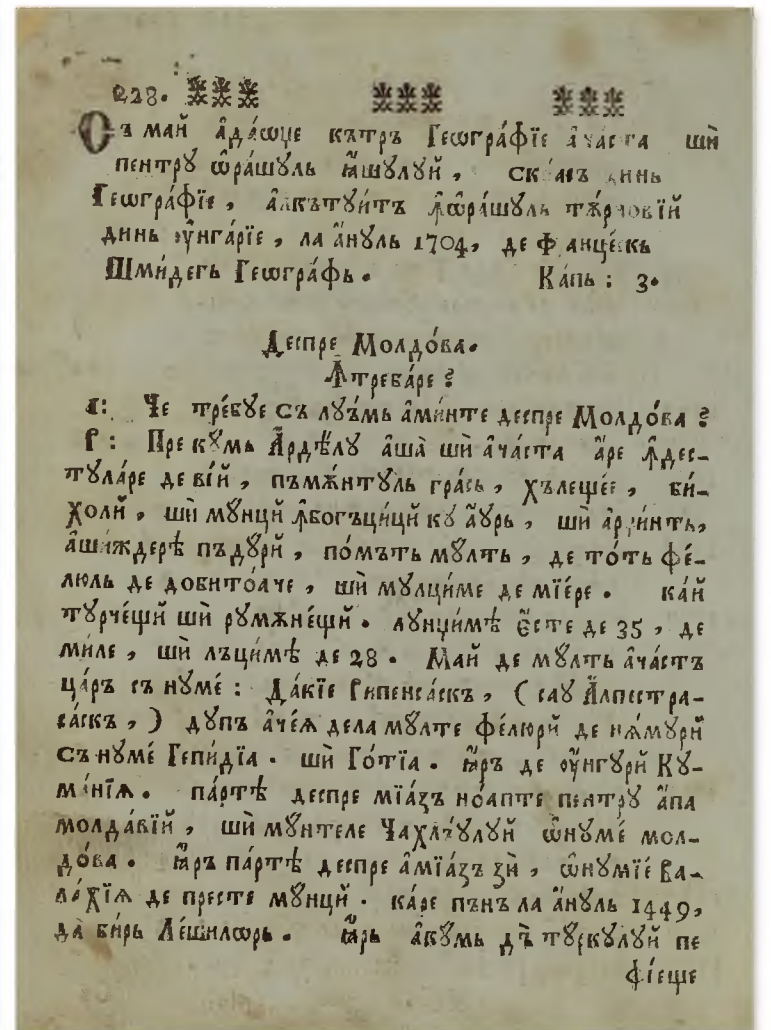 228.
Съ май а҆да́ѡще кътръ Геѡгра́фїе а҆ча́ста шѝ
пентрꙋ ѡ҆ра́шꙋль ꙗ҆́шꙋлꙋй , динь
Геѡгра́фїе , а҆лкътꙋи́тъ ꙟ҆ѡра́шꙋль тѫ́рновїй
динь оу҆нга́рїе , ла а҆́нꙋль 1704, де Францескь
Шми́дегь Геѡгра́фь . Ка́пь : 3.
Деспре Молдо́ва.
Ꙟ҆треба́ре ?
Че тре́бꙋе съ лꙋъ́мь а҆ми́нте деспре Молдо́ва ?
Р : Прекꙋ́мь А҆рдѣ́лꙋ а҆ша̀ шѝ а҆ча́ста а҆́ре ꙟ҆дес-
тꙋла́ре де ві́й , пъмѫ́нтꙋль гра́сь , хълеще́е , би-
холй , шѝ мꙋ́нцй ꙟ҆богъци́цй кꙋ а҆́ꙋрь , шѝ а҆рџи́нть,
а҆ши́ждерѣ пъдꙋ́рй , по́мъть мꙋ́лть , де то́ть фе́-
люль де добито́аче , шѝ мꙋлци́ме де мїе́ре . ка́й
тꙋрче́щй шѝ рꙋмѫне́щй . лꙋнџи́мѣ є҆́сте де 35 , де
ми́ле , шѝ лъци́мѣ де 28 . Май де мꙋ́лть а҆ча́стъ
ца́ръ съ нꙋме́ : Да́кїе Рипенса́скъ , ( саꙋ А҆лпестра-
са́скъ , ) дꙋпъ а҆че́ѧ дела мꙋ́лте фе́люрй де нѧ́мꙋрй
съ нꙋме́ Гепи́дїа . шѝ Го́тїа . ꙗ҆́ръ де оу҆́нгꙋрй Кꙋ-
ма́нїѧ . па́ртѣ деспре мїа́зъ но́апте пентрꙋ а҆́па
молда́вїй , шѝ мꙋ́нтеле Чахлъ́ꙋлꙋй ѡ҆нꙋме́ мол-
до́ва . ꙗ҆́ръ па́ртѣ деспре а҆мїа́зъ зѝ , ѡ҆нꙋмїе́ Ва-
ла́хїѧ де престе мꙋ́нцй . ка́ре пънъ ла а҆́нꙋль 1449,
да̀ би́рь Ле́шилѡрь . ꙗ҆́рь а҆кꙋ́мь дъ̀ тꙋ́ркꙋлꙋй пе
фїеще